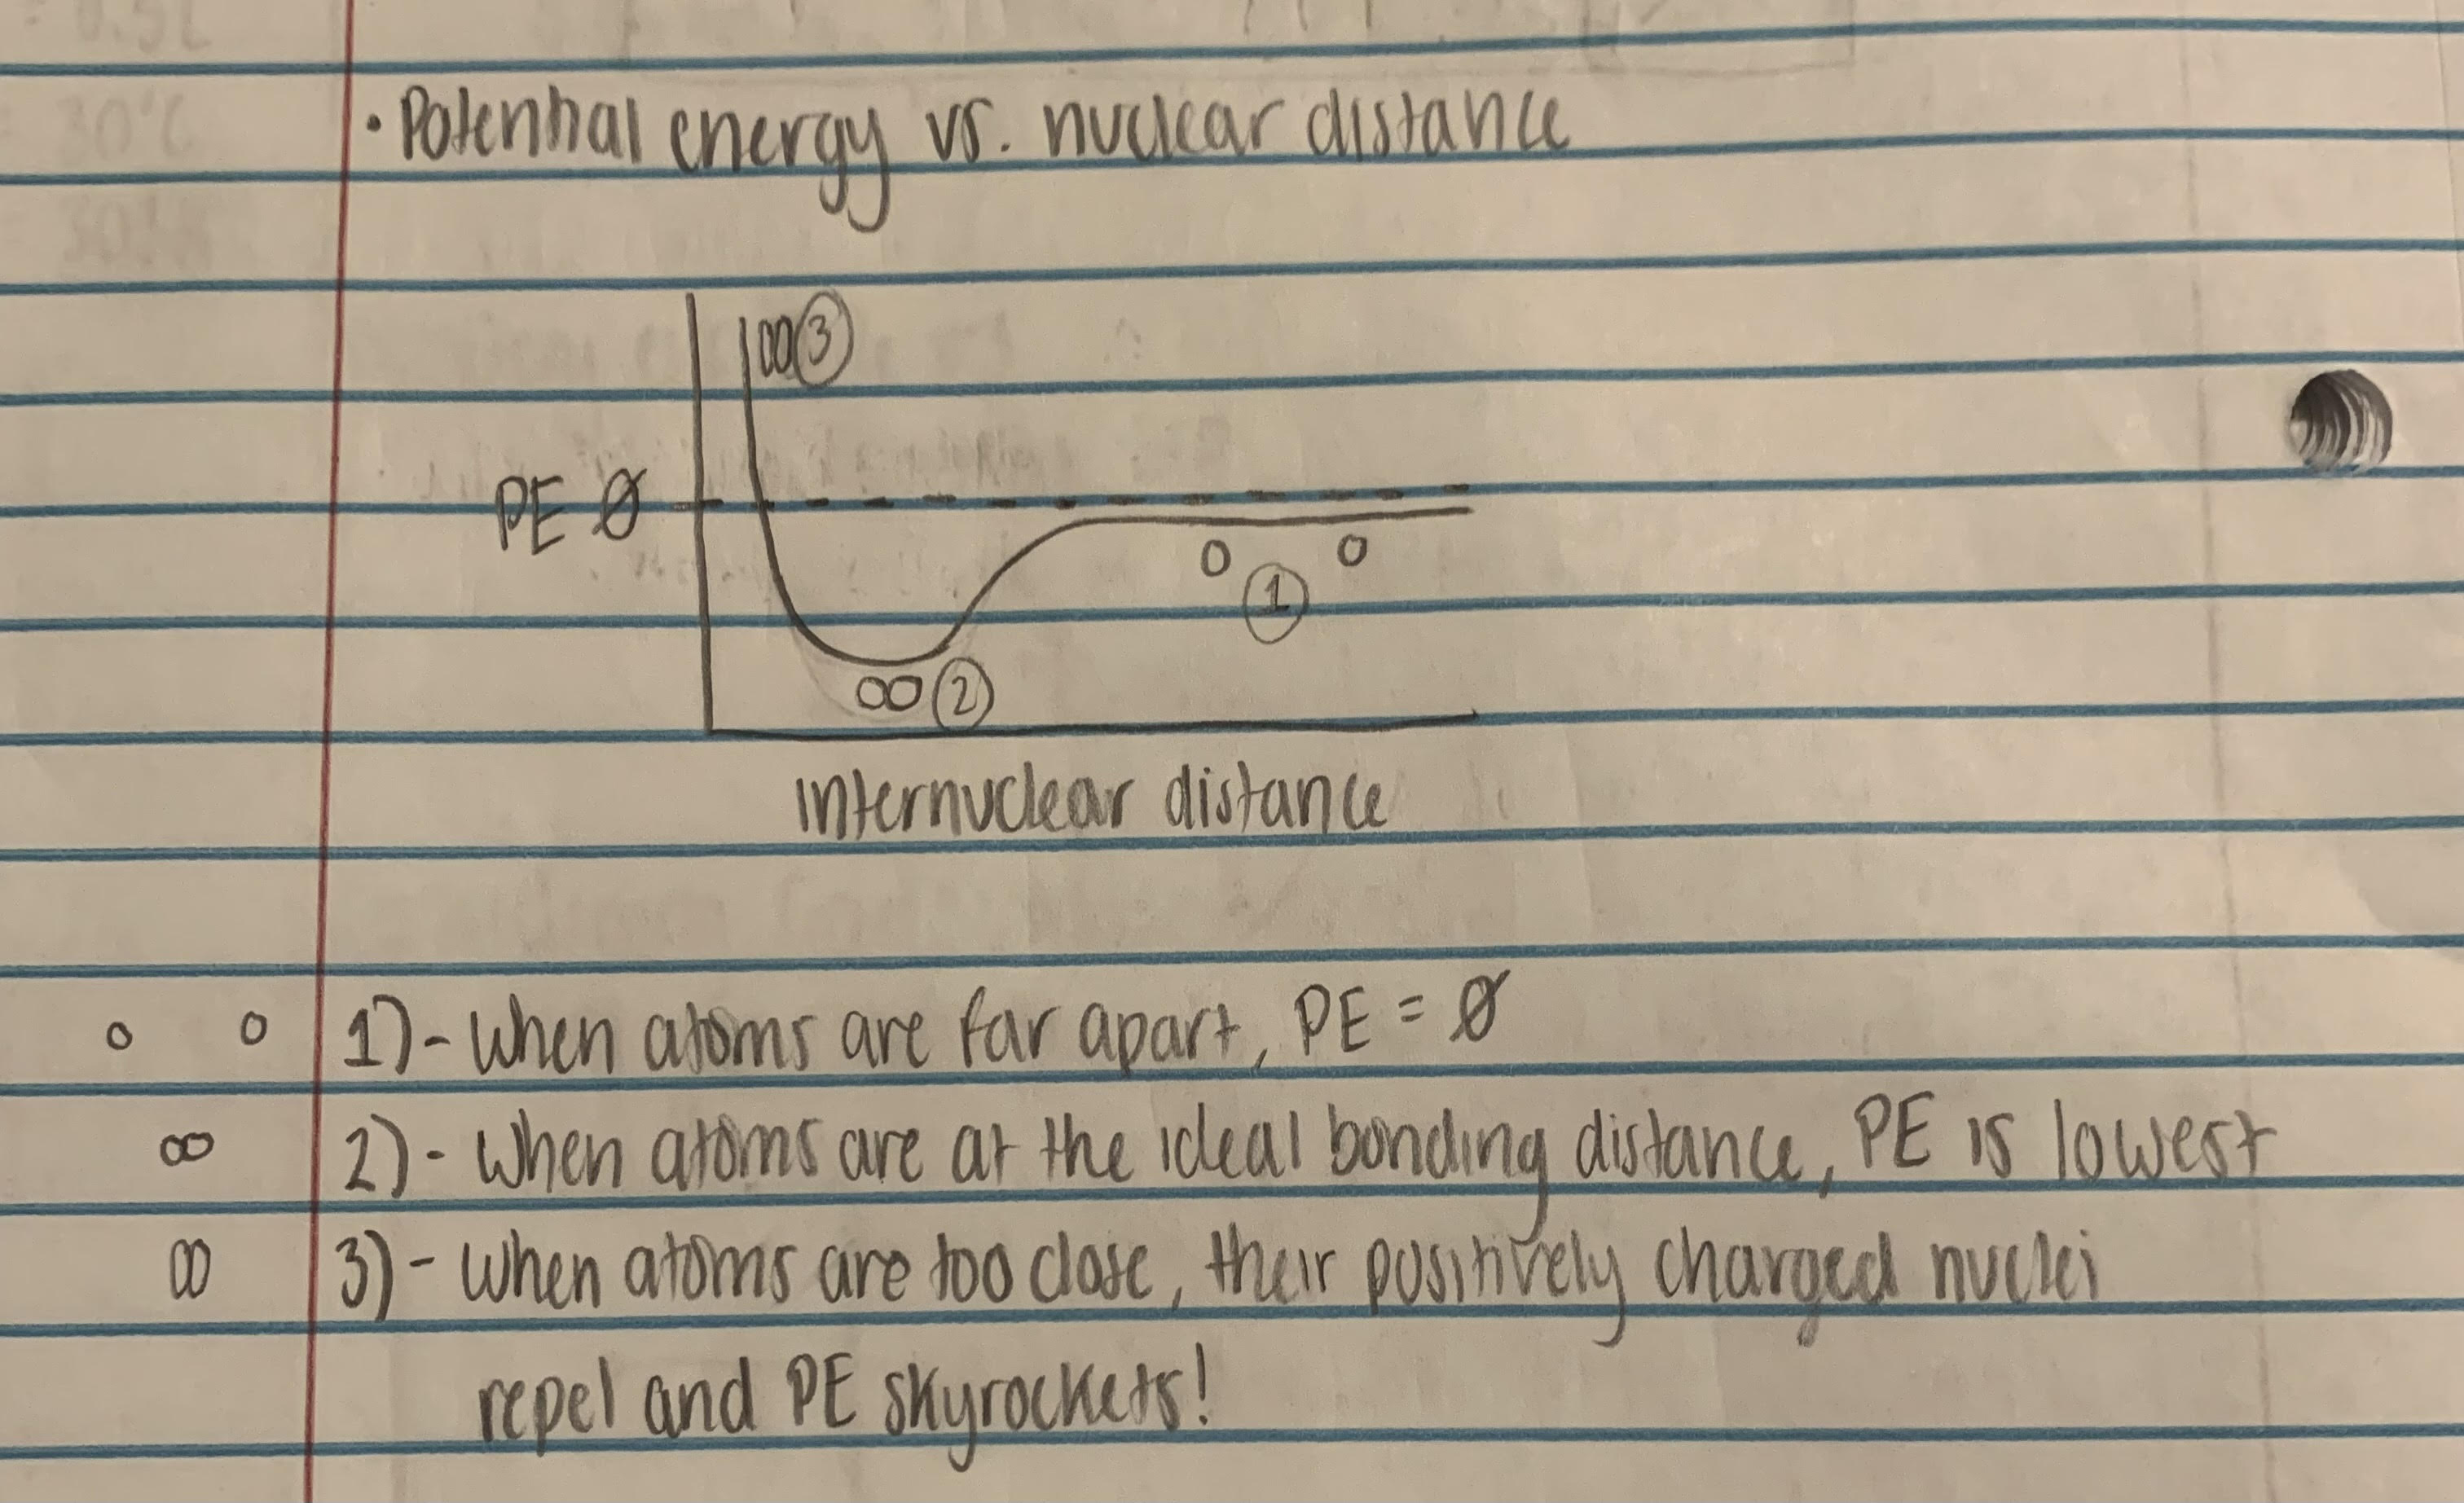 • Potential energy vs. nuclear distance
③
PE Ø
①
②
Internuclear distance
1)- When atoms are far apart, PE = Ø
2)- When atoms are at the ideal bonding distance, PE is lowest
3)- When atoms are too close, their positively charged nuclei
repel and PE skyrockets!